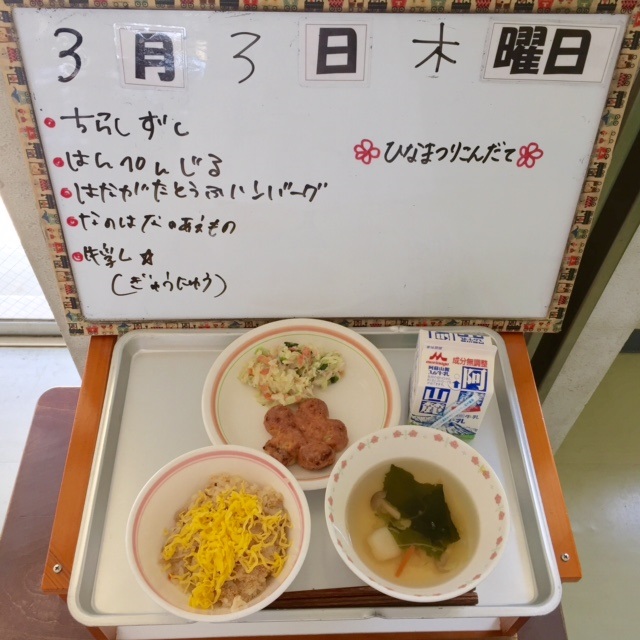 3月3日 木曜日
ちらしずし
✿ひなまつりこんだて✿
はんぺんじる
はながたとうふハンバーグ
なのはなのあえもの
牛乳☆
(ぎゅうにゅう)
森永
成分無調整
阿蘇山麓